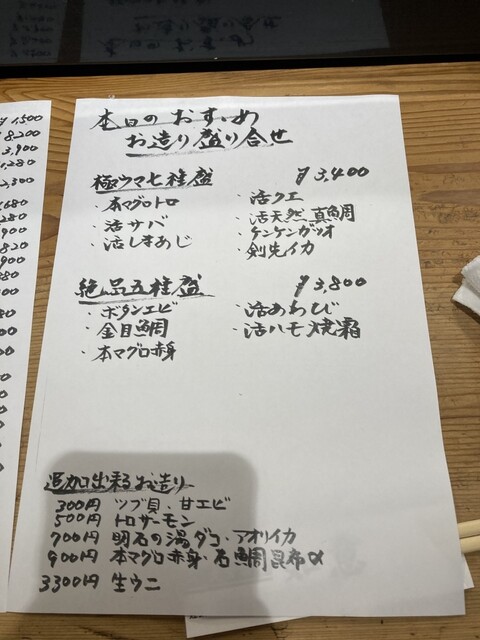 本日のおすすめ
お造り盛り合せ
極ウマ七種盛 ¥3,400
・本マグロトロ ・活クエ
・活サバ ・活天然真鯛
・活しまあじ ・ケンケンガツオ
・剣先イカ
絶品五種盛 ¥3,800
・ボタンエビ ・活あわび
・金目鯛 ・活ハモ焼霜
・本マグロ赤身
追加出来るお造り
300円 ツブ貝・甘エビ
500円 トロサーモン
700円 明石の湯ダコ・アオリイカ
900円 本マグロ赤身・石鯛昆布〆
3300円 生ウニ
¥1,500
8,200
3,900
1,280
2,300